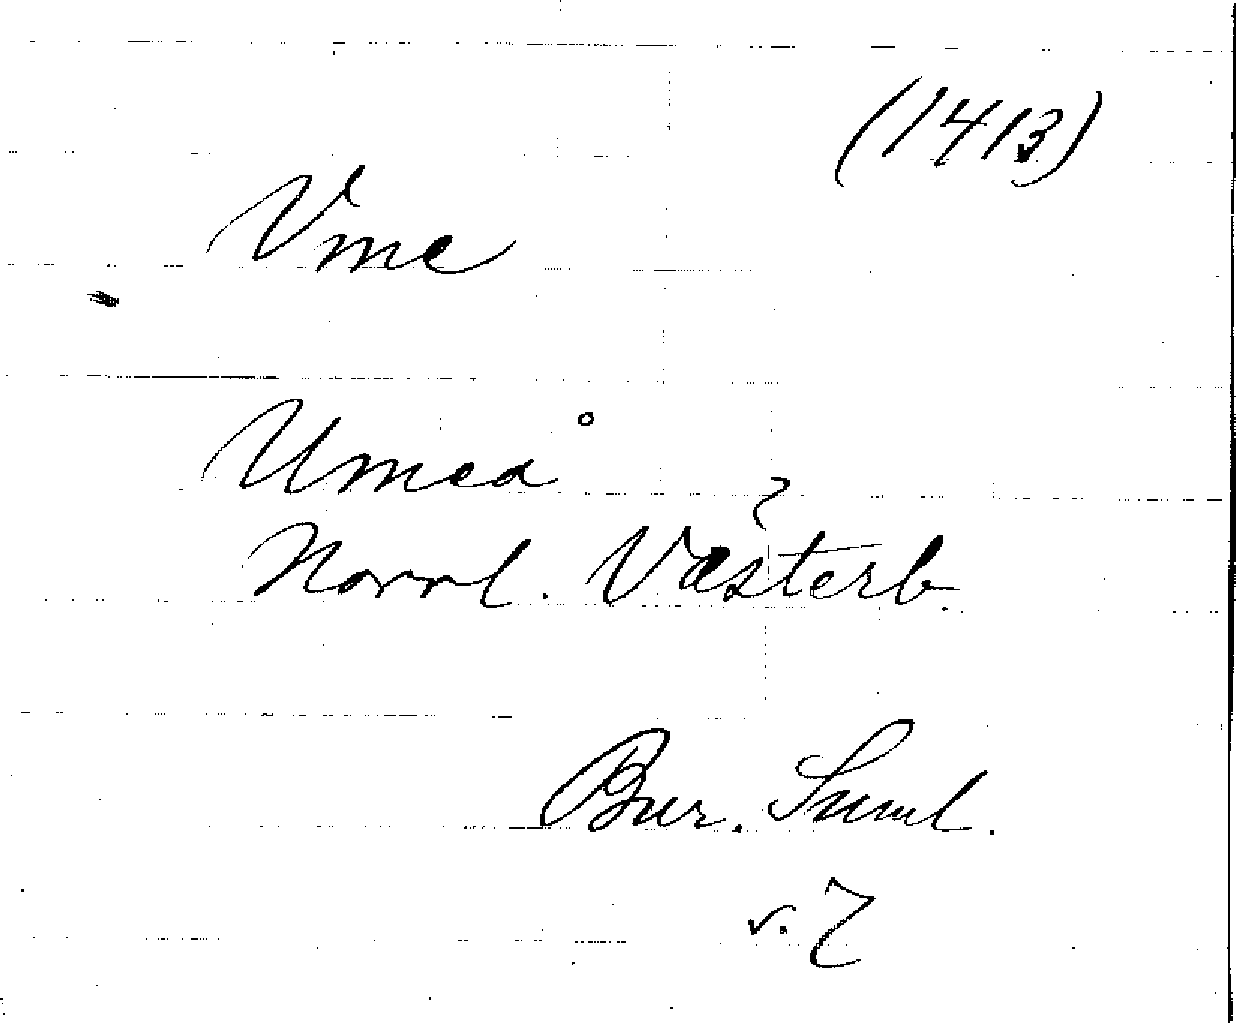 (1413)
Vme
Umeå
Norrl. Västerb.
Bur. Suml.
v. 7